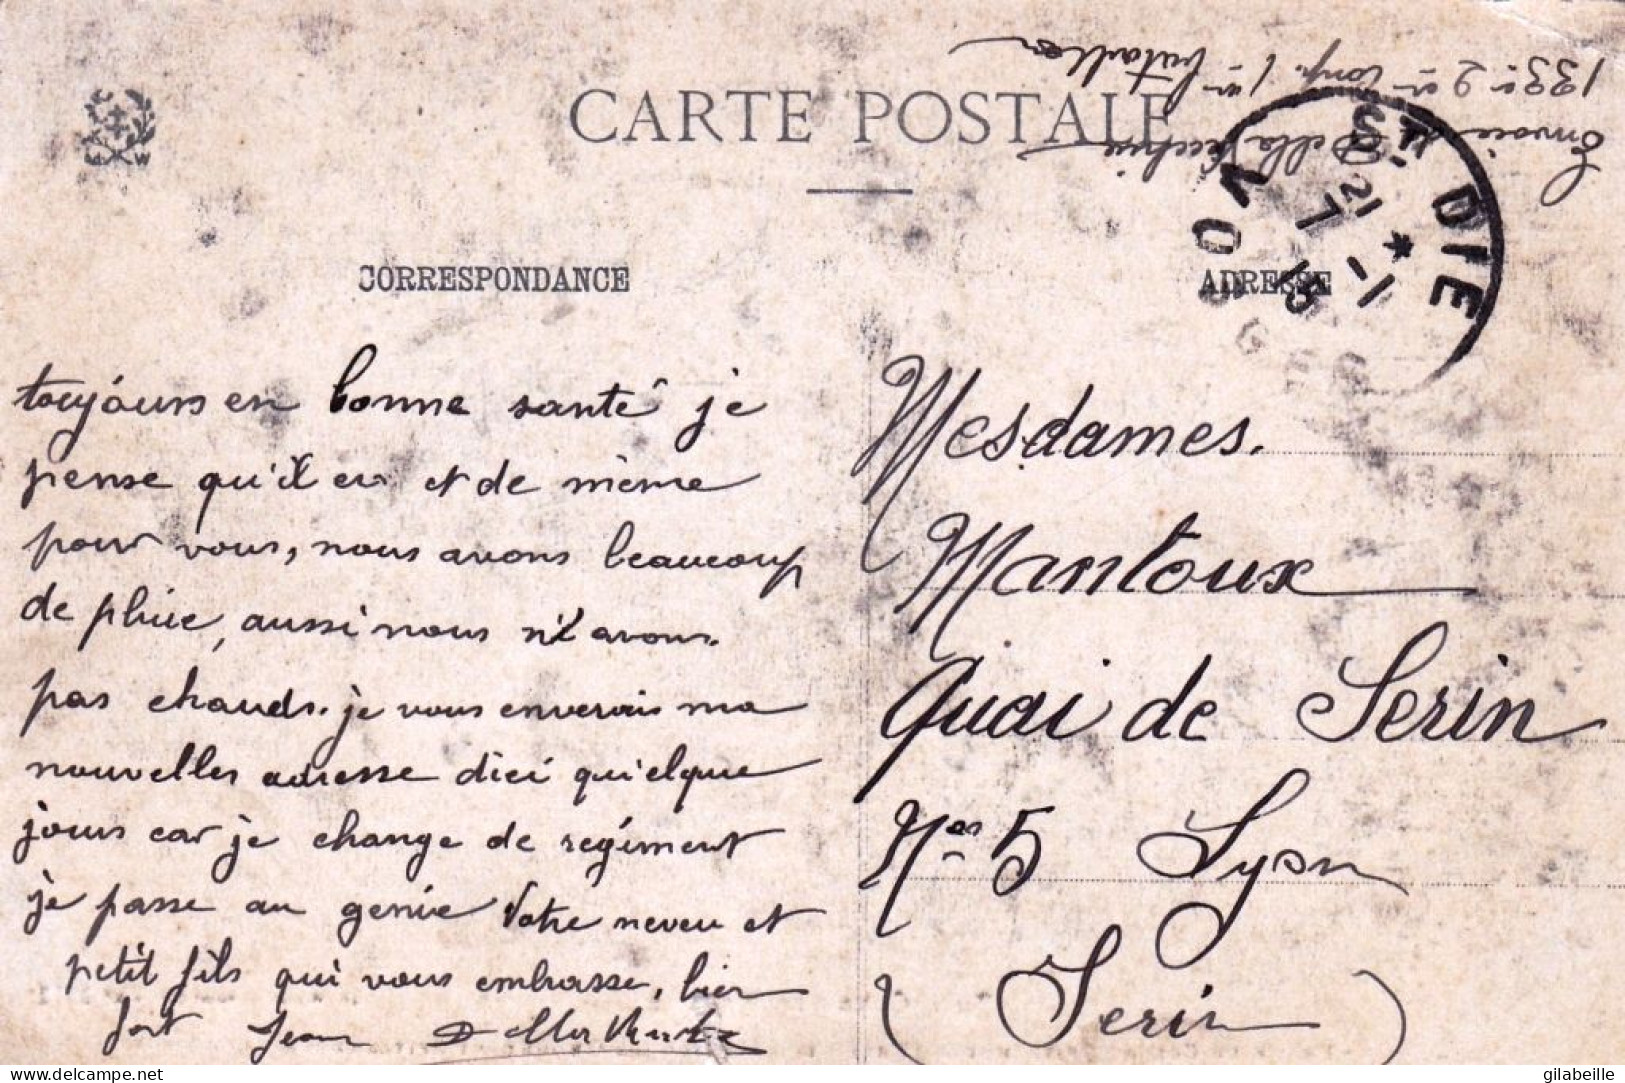 CARTE POSTALE
Envoie de Della Vecchia
133e 2em Comp. 1er bataillon
ST DIÉ
VOSGES
21
7 - 1
15
CORRESPONDANCE
toujours en bonne santé je
pense qu'il en et de même
pour vous, nous avons beaucoup
de pluie, aussi nous n'avons
pas chauds. je vous enverais ma
nouvelles adresse dici quielque
jours car je change de regiment
je passe au genie Votre neveu et
petit fils qui vous embrasse, bien
fort Jean
ADRESSE
Mesdames.
Mantoux
Quai de Serin
Nos 5 Lyon
(Serin)
MW
delcampe.net
gilabeille